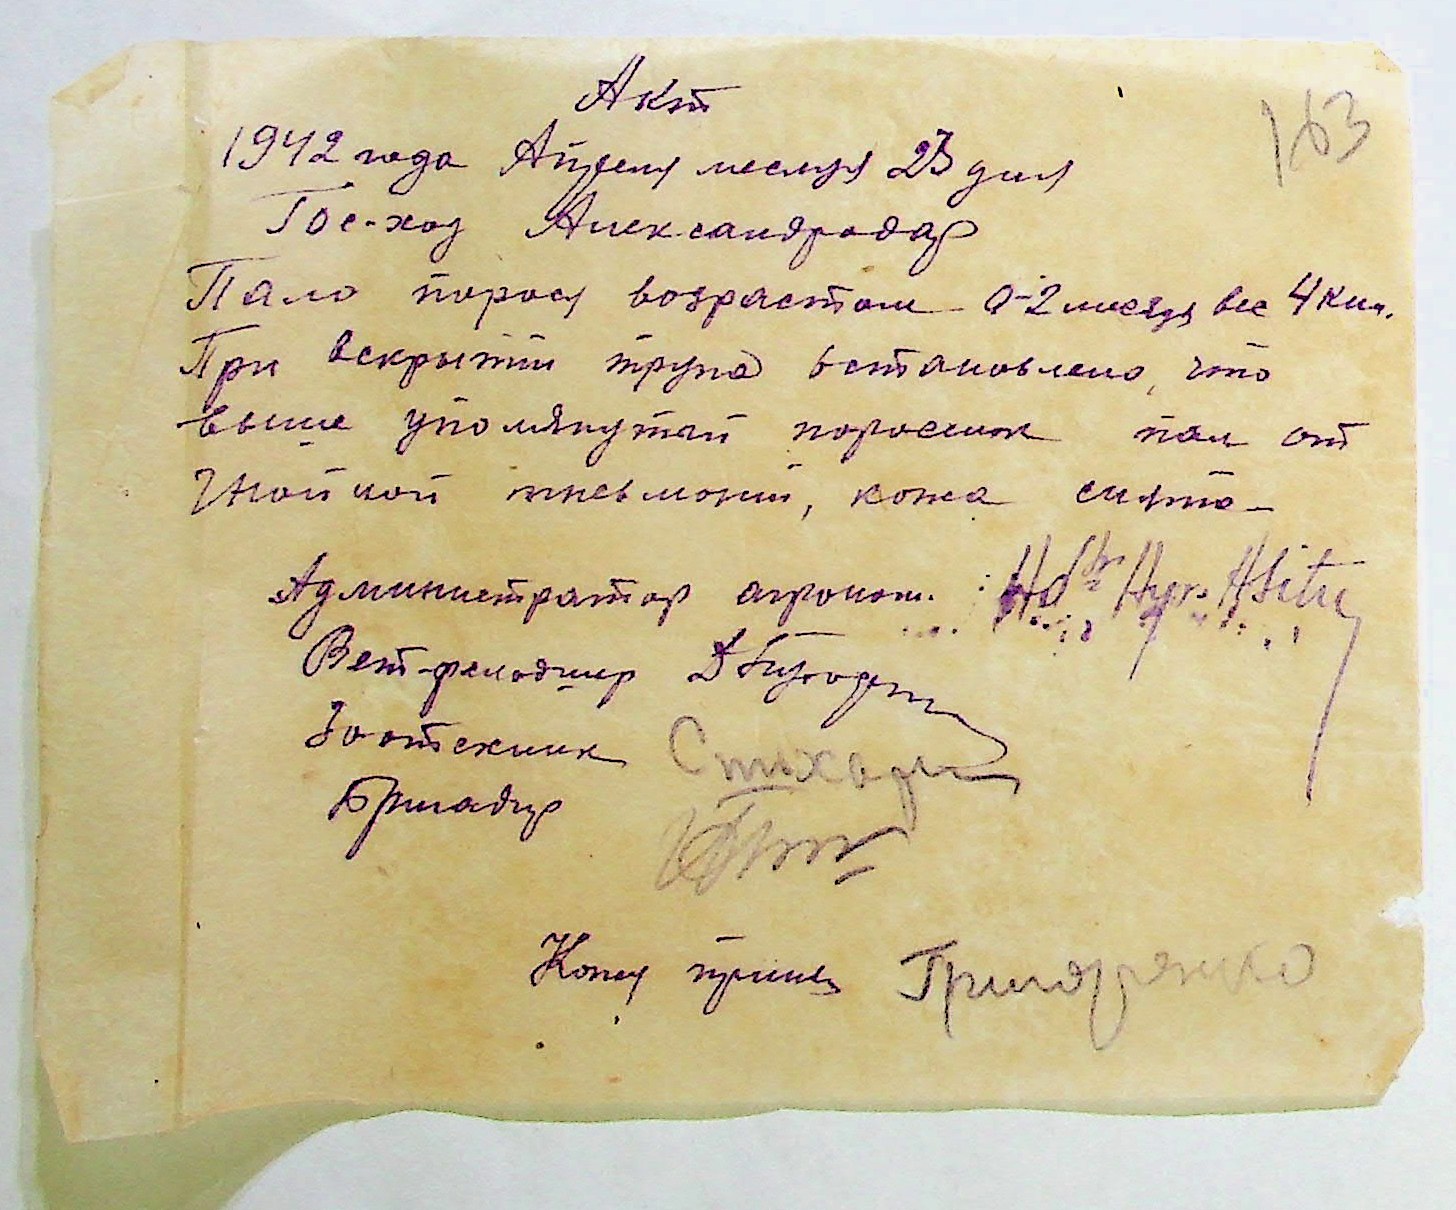 Акт
163
1942 года Апреля месяця 23 дня
Гос-ход Александродар
Пало порося возрастом 0-2 месяця вес 4 кил.
При вскрытии трупа встановлено, что
выше упомянутый поросенок пал от
гнойной пневмонии, кожа снята
Администратор агроном.
Вет-фельдшер
Зоотехник
Бригадир
Кожу принял